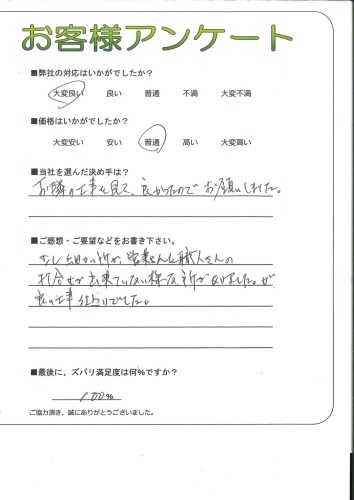 お客様アンケート
■弊社の対応はいかがでしたか?
大変良い 良い 普通 不満 大変不満
■価格はいかがでしたか?
大変安い 安い 普通 高い 大変高い
■当社を選んだ決め手は?
お隣の工事を見て、良かったのでお願いしました。
■ご感想・ご要望などをお書き下さい。
少し細かい所が、営業さんと職人さんの
打合せが出来ていない様な所が有りました。が
良い工事仕上りでした。
■最後に、ズバリ満足度は何%ですか?
100%
ご協力頂き、誠にありがとうございました。